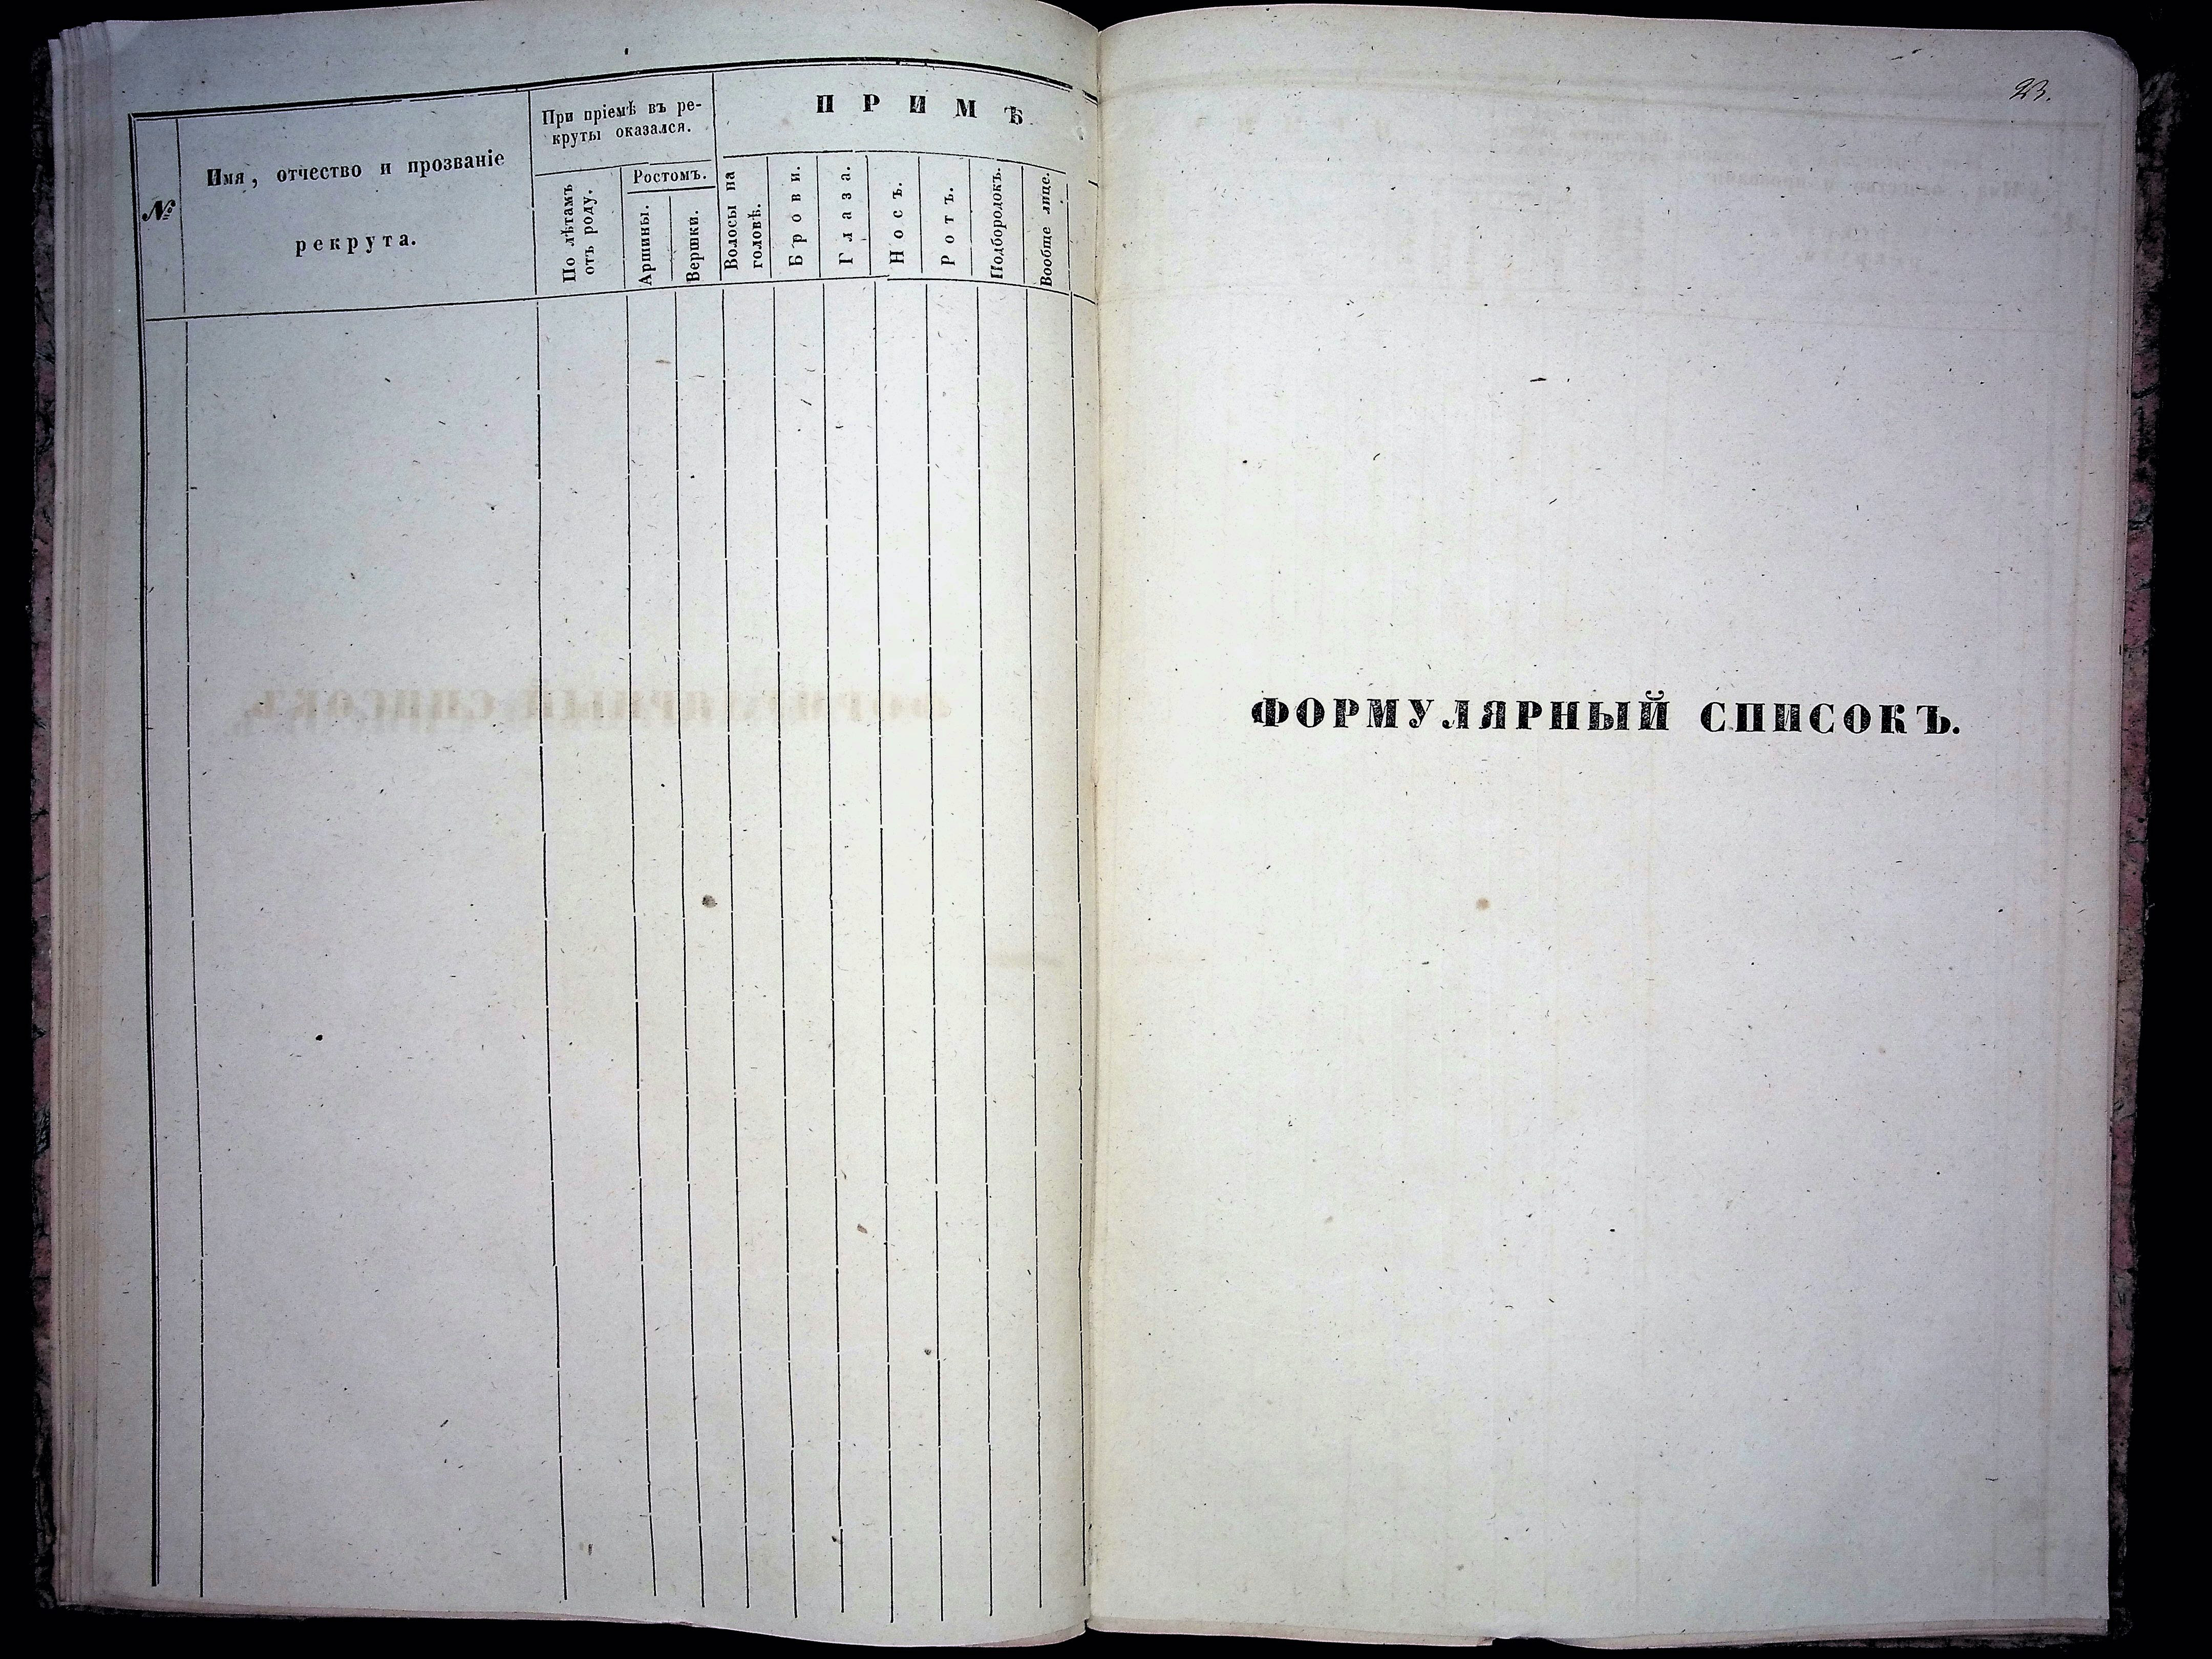 №
Имя, отчество и прозваніе
рекрута.
При пріемѣ въ ре-
круты оказался.
По лѣтамъ
отъ роду.
Ростомъ.
Аршины.
Вершки.
ПРИМѢ
Волосы на
головѣ.
Брови.
Глаза.
Носъ.
Ротъ.
Подбородокъ.
Вообще лице.
23.
ФОРМУЛЯРНЫЙ СПИСОКЪ.